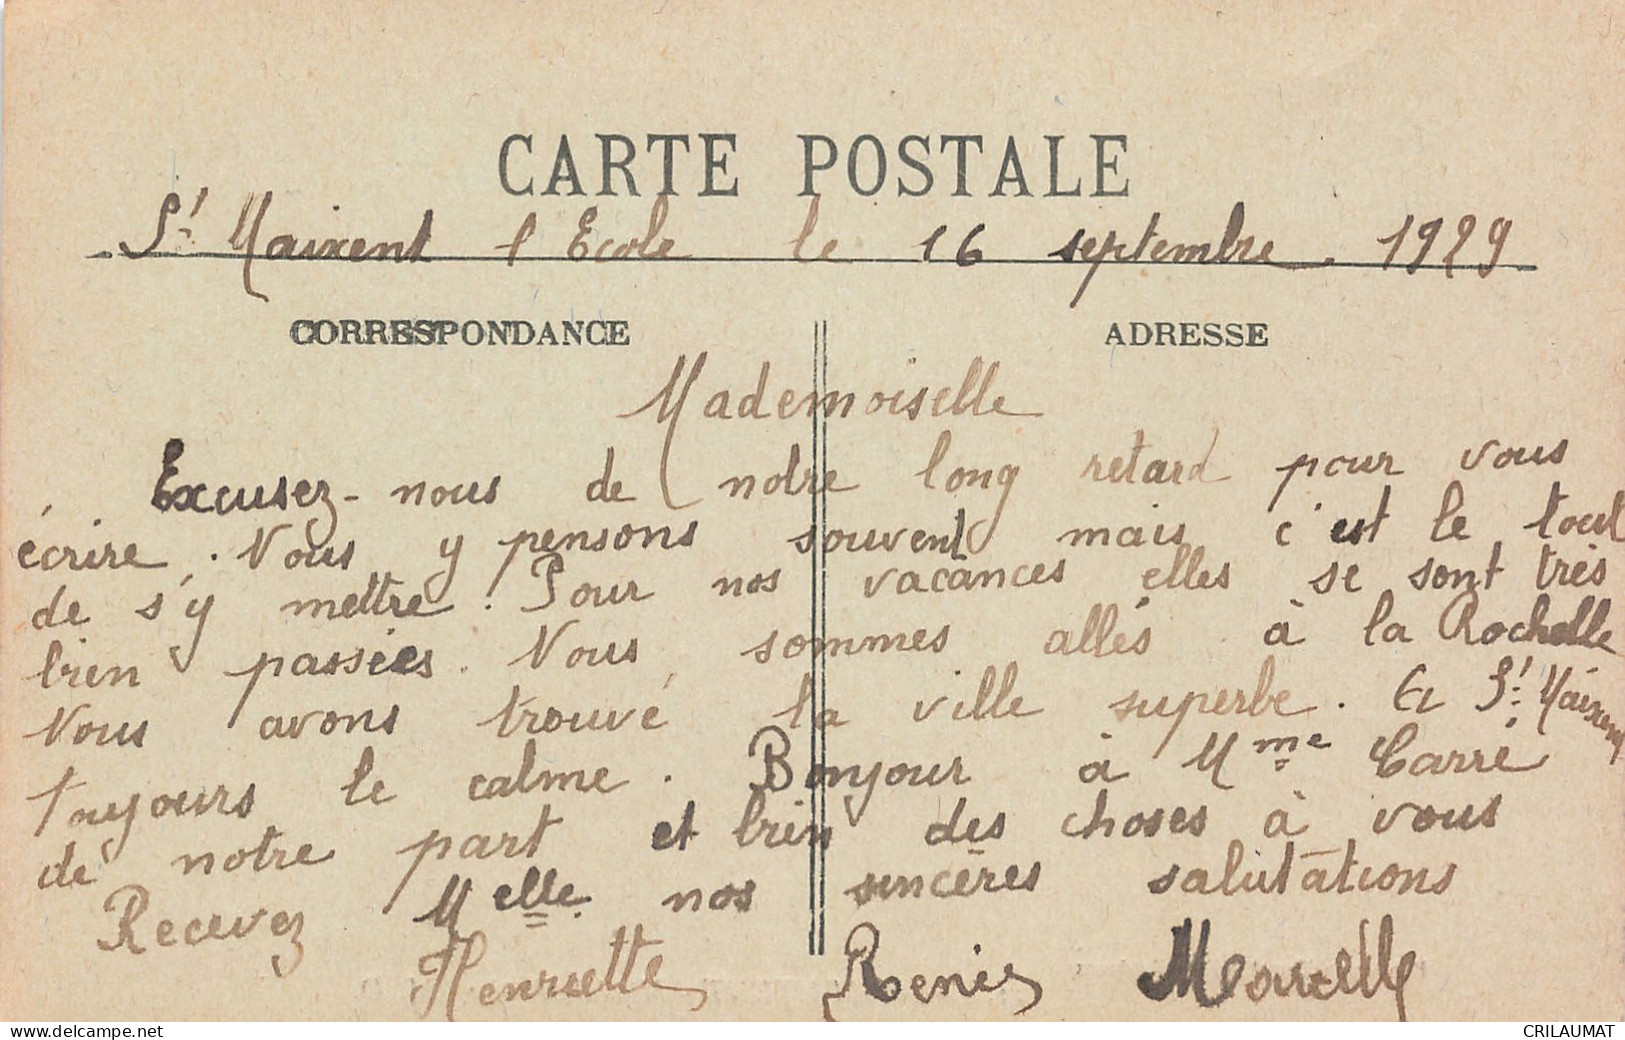 CARTE POSTALE
St Maixent l'Ecole le 16 septembre 1929
CORRESPONDANCE
ADRESSE
Mademoiselle
Excusez-nous de notre long retard pour vous
écrire. Nous y pensons souvent mais c'est le tout
de s'y mettre. Pour nos vacances elles se sont très
bien passées. Nous sommes allés à la Rochelle
Nous avons trouvé la ville superbe. Et St Maixent
toujours le calme. Bonjour à Mme Carré
de notre part et bien des choses à vous
Recevez Melle nos sincères salutations
Henriette Marcelle
delcampe.net
CRILAUMAT